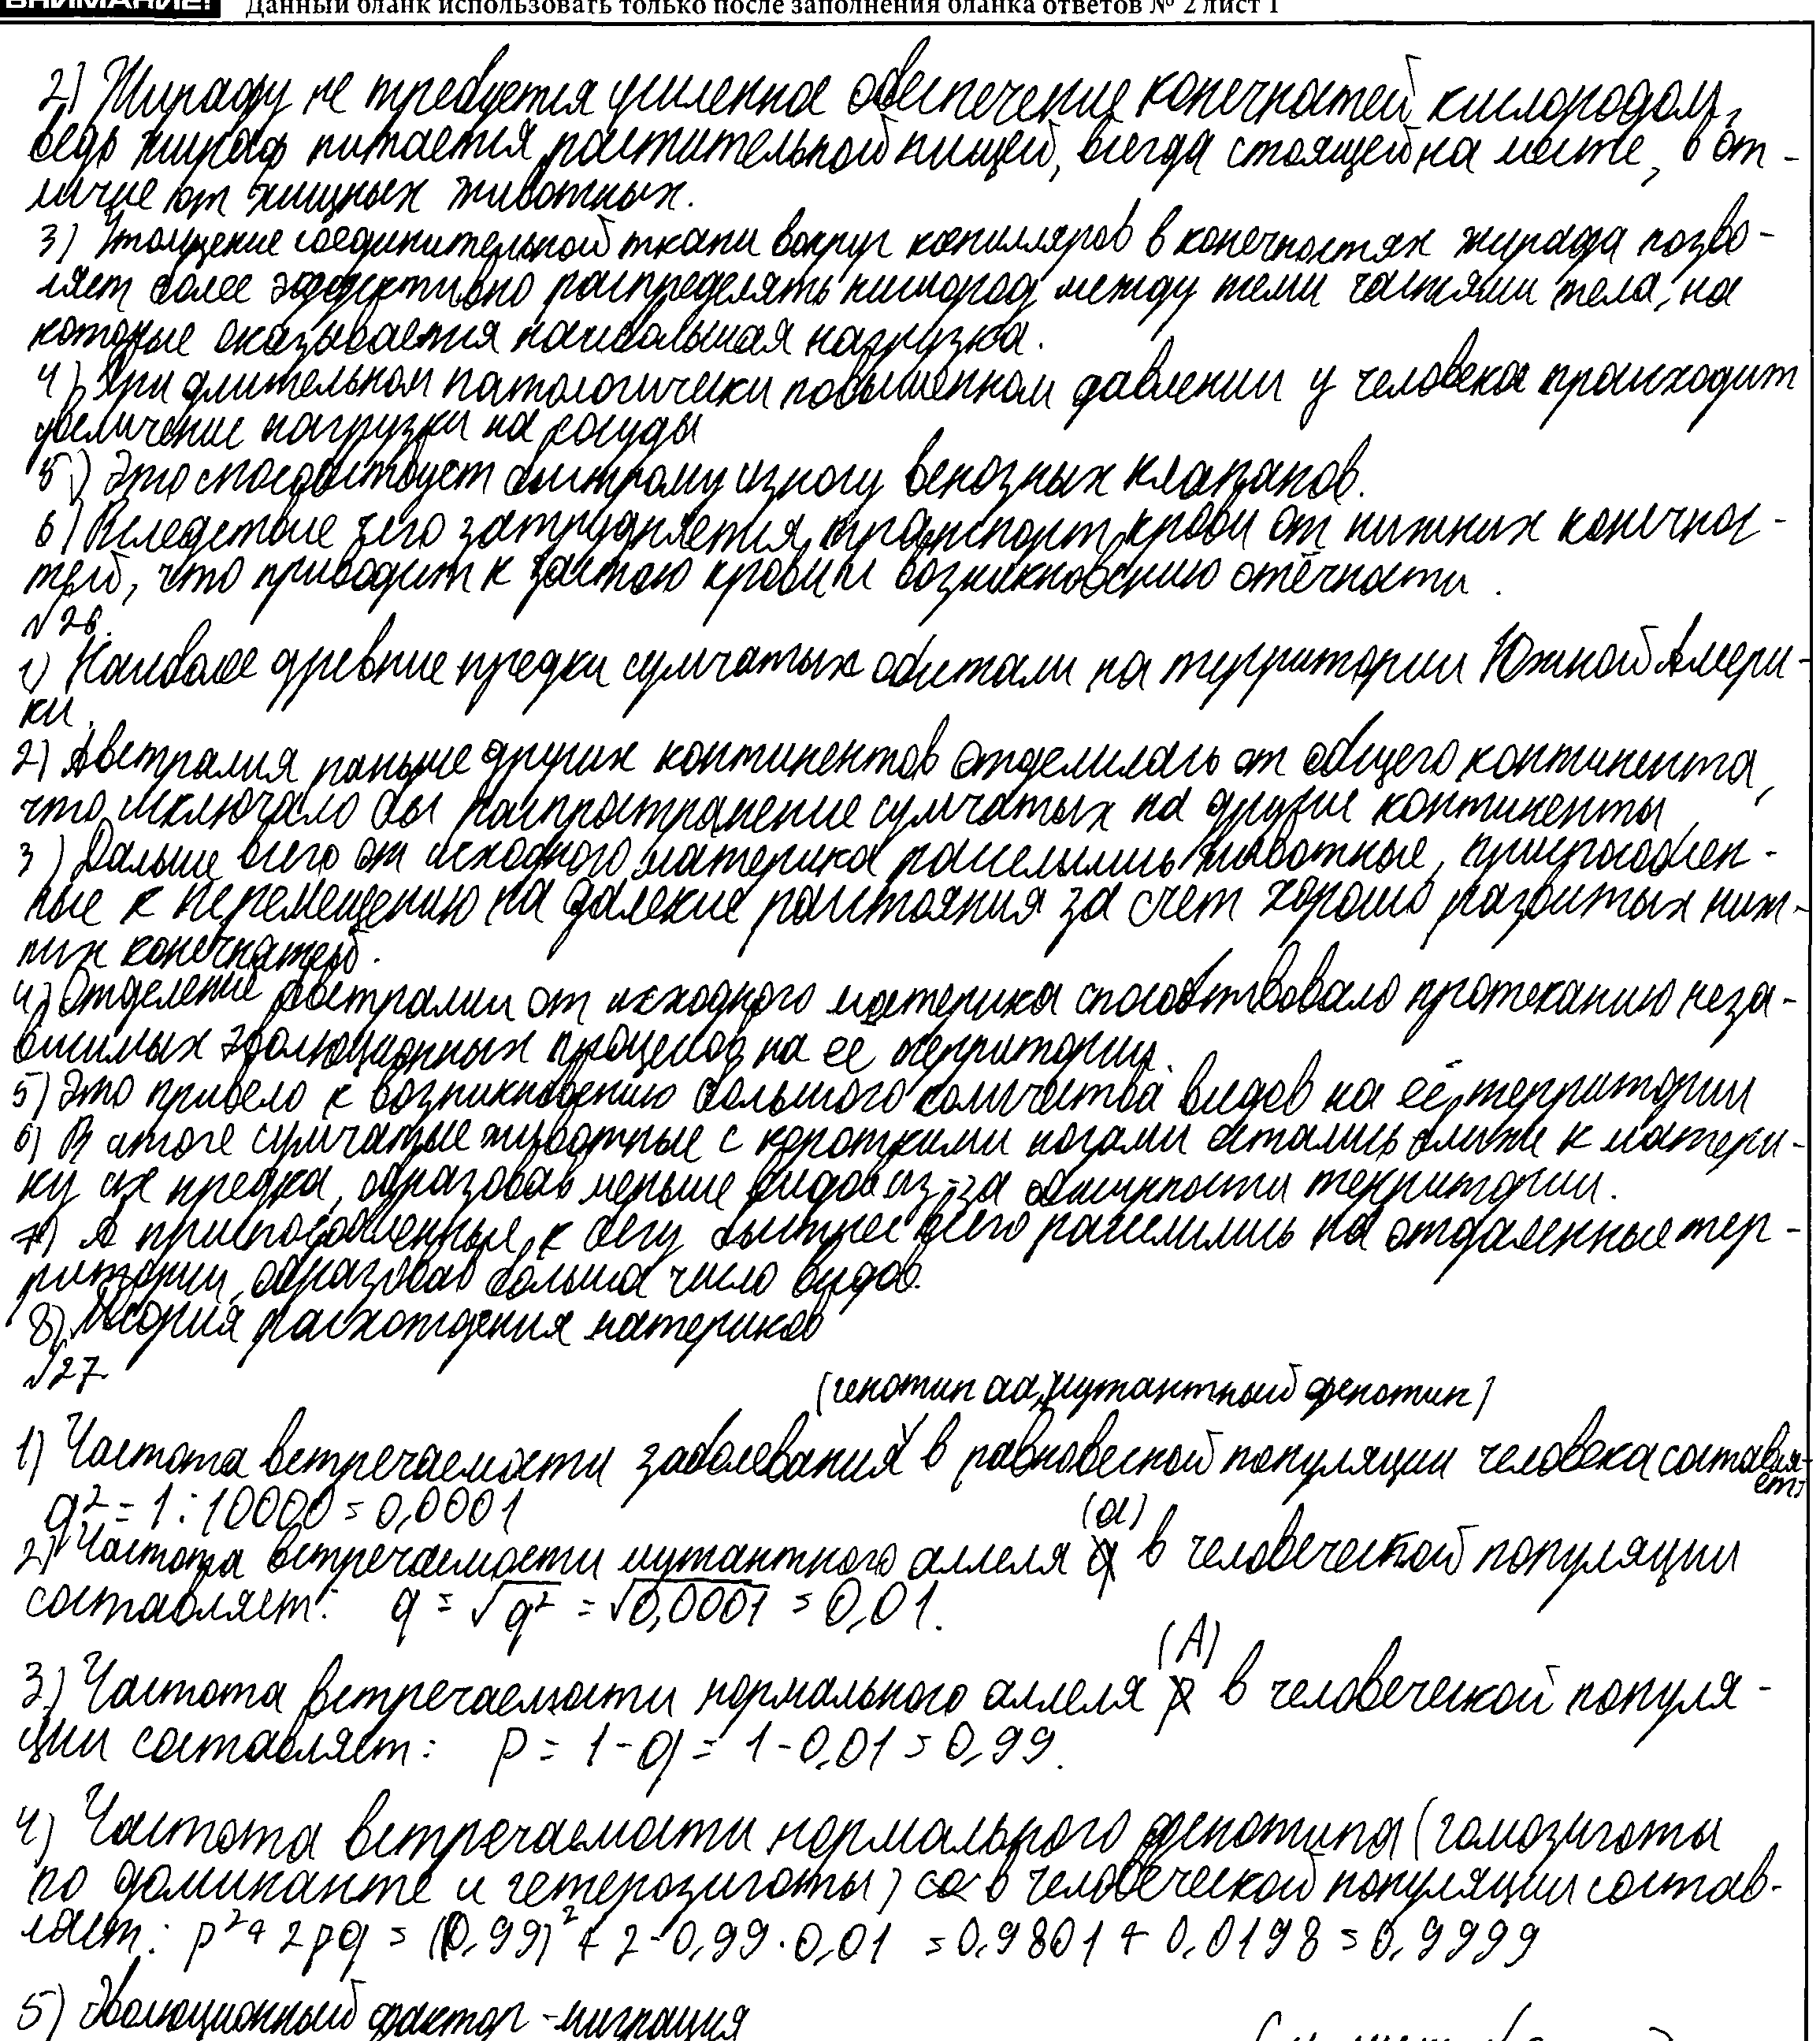 ВНИМАНИЕ! Данный бланк использовать только после заполнения бланка ответов № 2 лист 1
2) Жирафу не требуется усиленное обеспечение конечностей кислородом,
ведь жираф питается растительной пищей, всегда стоящей на месте, в от-
личие от хищных животных.
3) Утолщение соединительной ткани вокруг капилляров в конечностях жирафа позво-
ляет более эффективно распределять кислород между теми частями тела, на
которые оказывается наибольшая нагрузка.
4) При длительном патологически повышенном давлении у человека происходит
увеличение нагрузки на сосуды
5) Это способствует быстрому износу венозных клапанов.
6) Вследствие чего затрудняется транспорт крови от нижних конечнос-
тей, что приводит к застою крови и возникновению отёчности.
№26.
1) Наиболее древние предки сумчатых обитали на территории Южной Амери-
ки.
2) Австралия раньше других континентов отделилась от общего континента,
что исключало бы распространение сумчатых на другие континенты
3) Дальше всего от исходного материка расселились животные, приспособлен-
ные к перемещению на далекие расстояния за счет хорошо развитых ниж-
них конечностей.
4) Отделение Австралии от исходного материка способствовало протеканию неза-
висимых эволюционных процессов на её территории.
5) Это привело к возникновению большого количества видов на её территории
6) В итоге сумчатые животные с короткими ногами остались ближе к матери-
ку их предка, образовав меньше видов из-за обширности территории.
7) А приспособленные к бегу быстрее всего расселились на отдаленные тер-
ритории, образовав больша число видов.
8) Теория расхождения материков
№27.
(генотип aa, мутантный фенотип)
1) Частота встречаемости заболевания в равновесной популяции человека составля-
ет:
q² = 1 : 10000 = 0,0001
(a)
2) Частота встречаемости мутантного аллеля в человеческой популяции
составляет: q = √q² = √0,0001 = 0,01.
(A)
3) Частота встречаемости нормального аллеля в человеческой популя-
ции составляет: p = 1 - q = 1 - 0,01 = 0,99.
4) Частота встречаемости нормального фенотипа (гомозиготы
по доминанте и гетерозиготы) в человеческой популяции состав-
ляет: p² + 2pq = (0,99)² + 2·0,99·0,01 = 0,9801 + 0,0198 = 0,9999
5) Эволюционный фактор - миграция